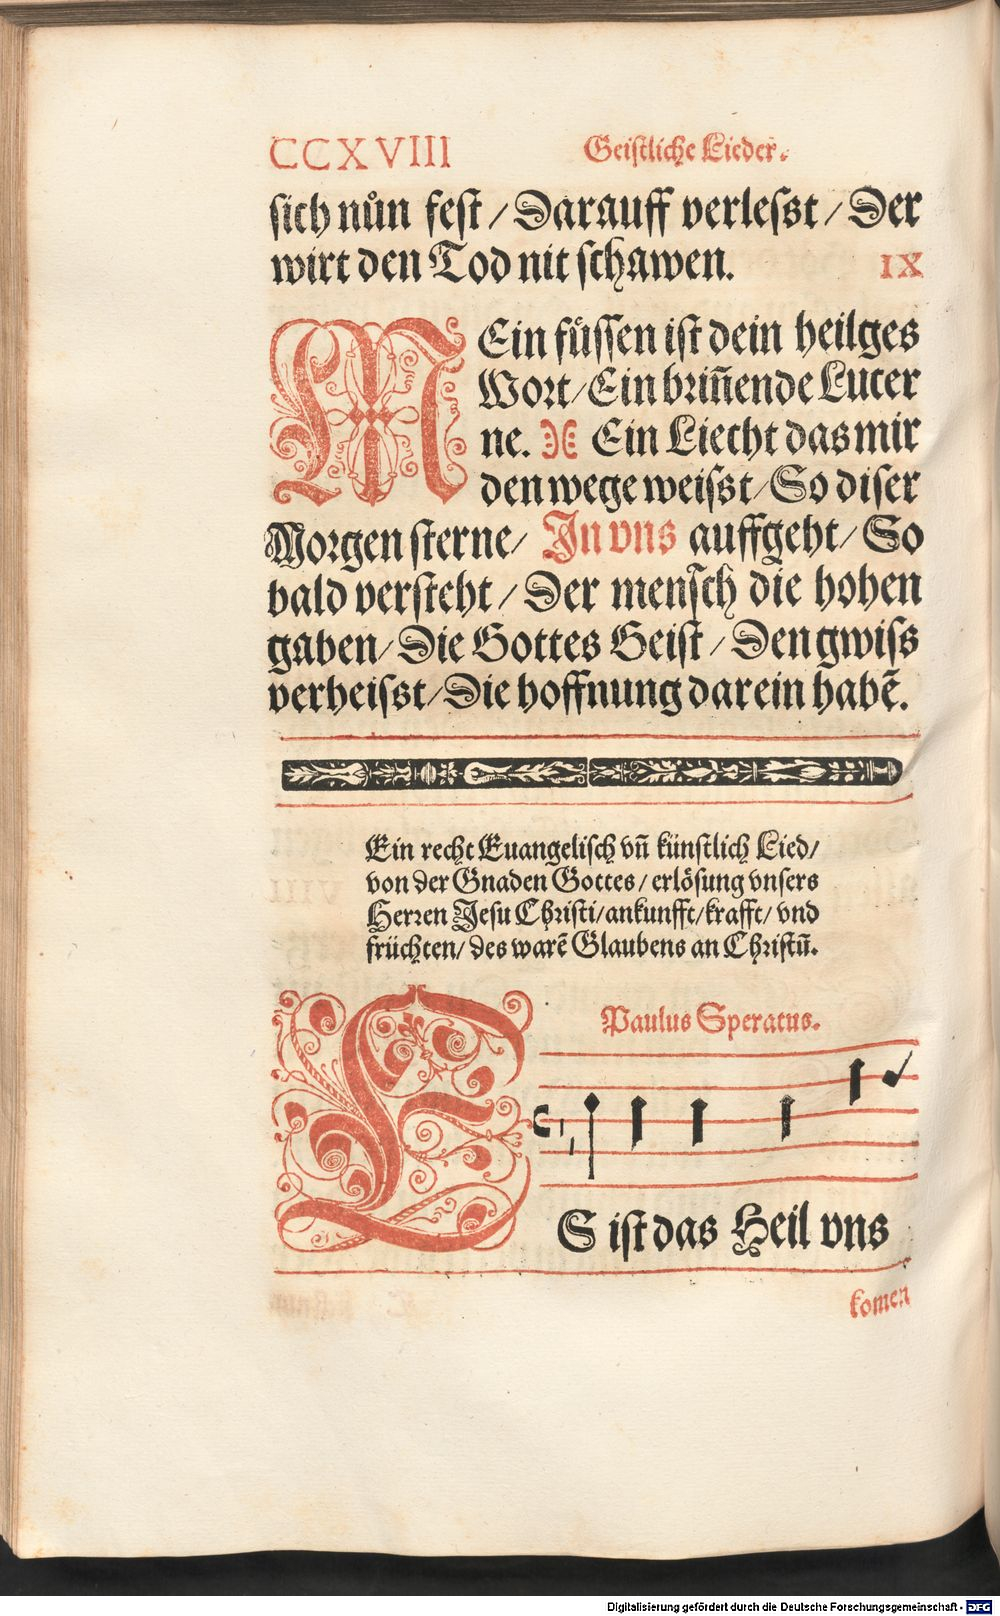 CCXVIII Geistliche Lieder.
sich nůn fest / Darauff verlesst / Der
wirt den Tod nit schawen. IX
MEin füssen ist dein heilges
Wort / Ein briñende Lucer
ne. Ein Liecht das mir
den wege weisst / So diser
Morgen sterne / In vns auffgeht / So
bald versteht / Der mensch die hohen
gaben / Die Gottes Geist / Den gwiss
verheisst / Die hoffnung darein habẽ.
Ein recht Euangelisch vñ künstlich Lied /
von der Gnaden Gottes / erlösung vnsers
Herren Jesu Christi / ankunfft / krafft / vnd
früchten / des warẽ Glaubens an Christũ.
Paulus Speratus.
ES ist das Heil vns
komen
Digitalisierung gefördert durch die Deutsche Forschungsgemeinschaft - DFG